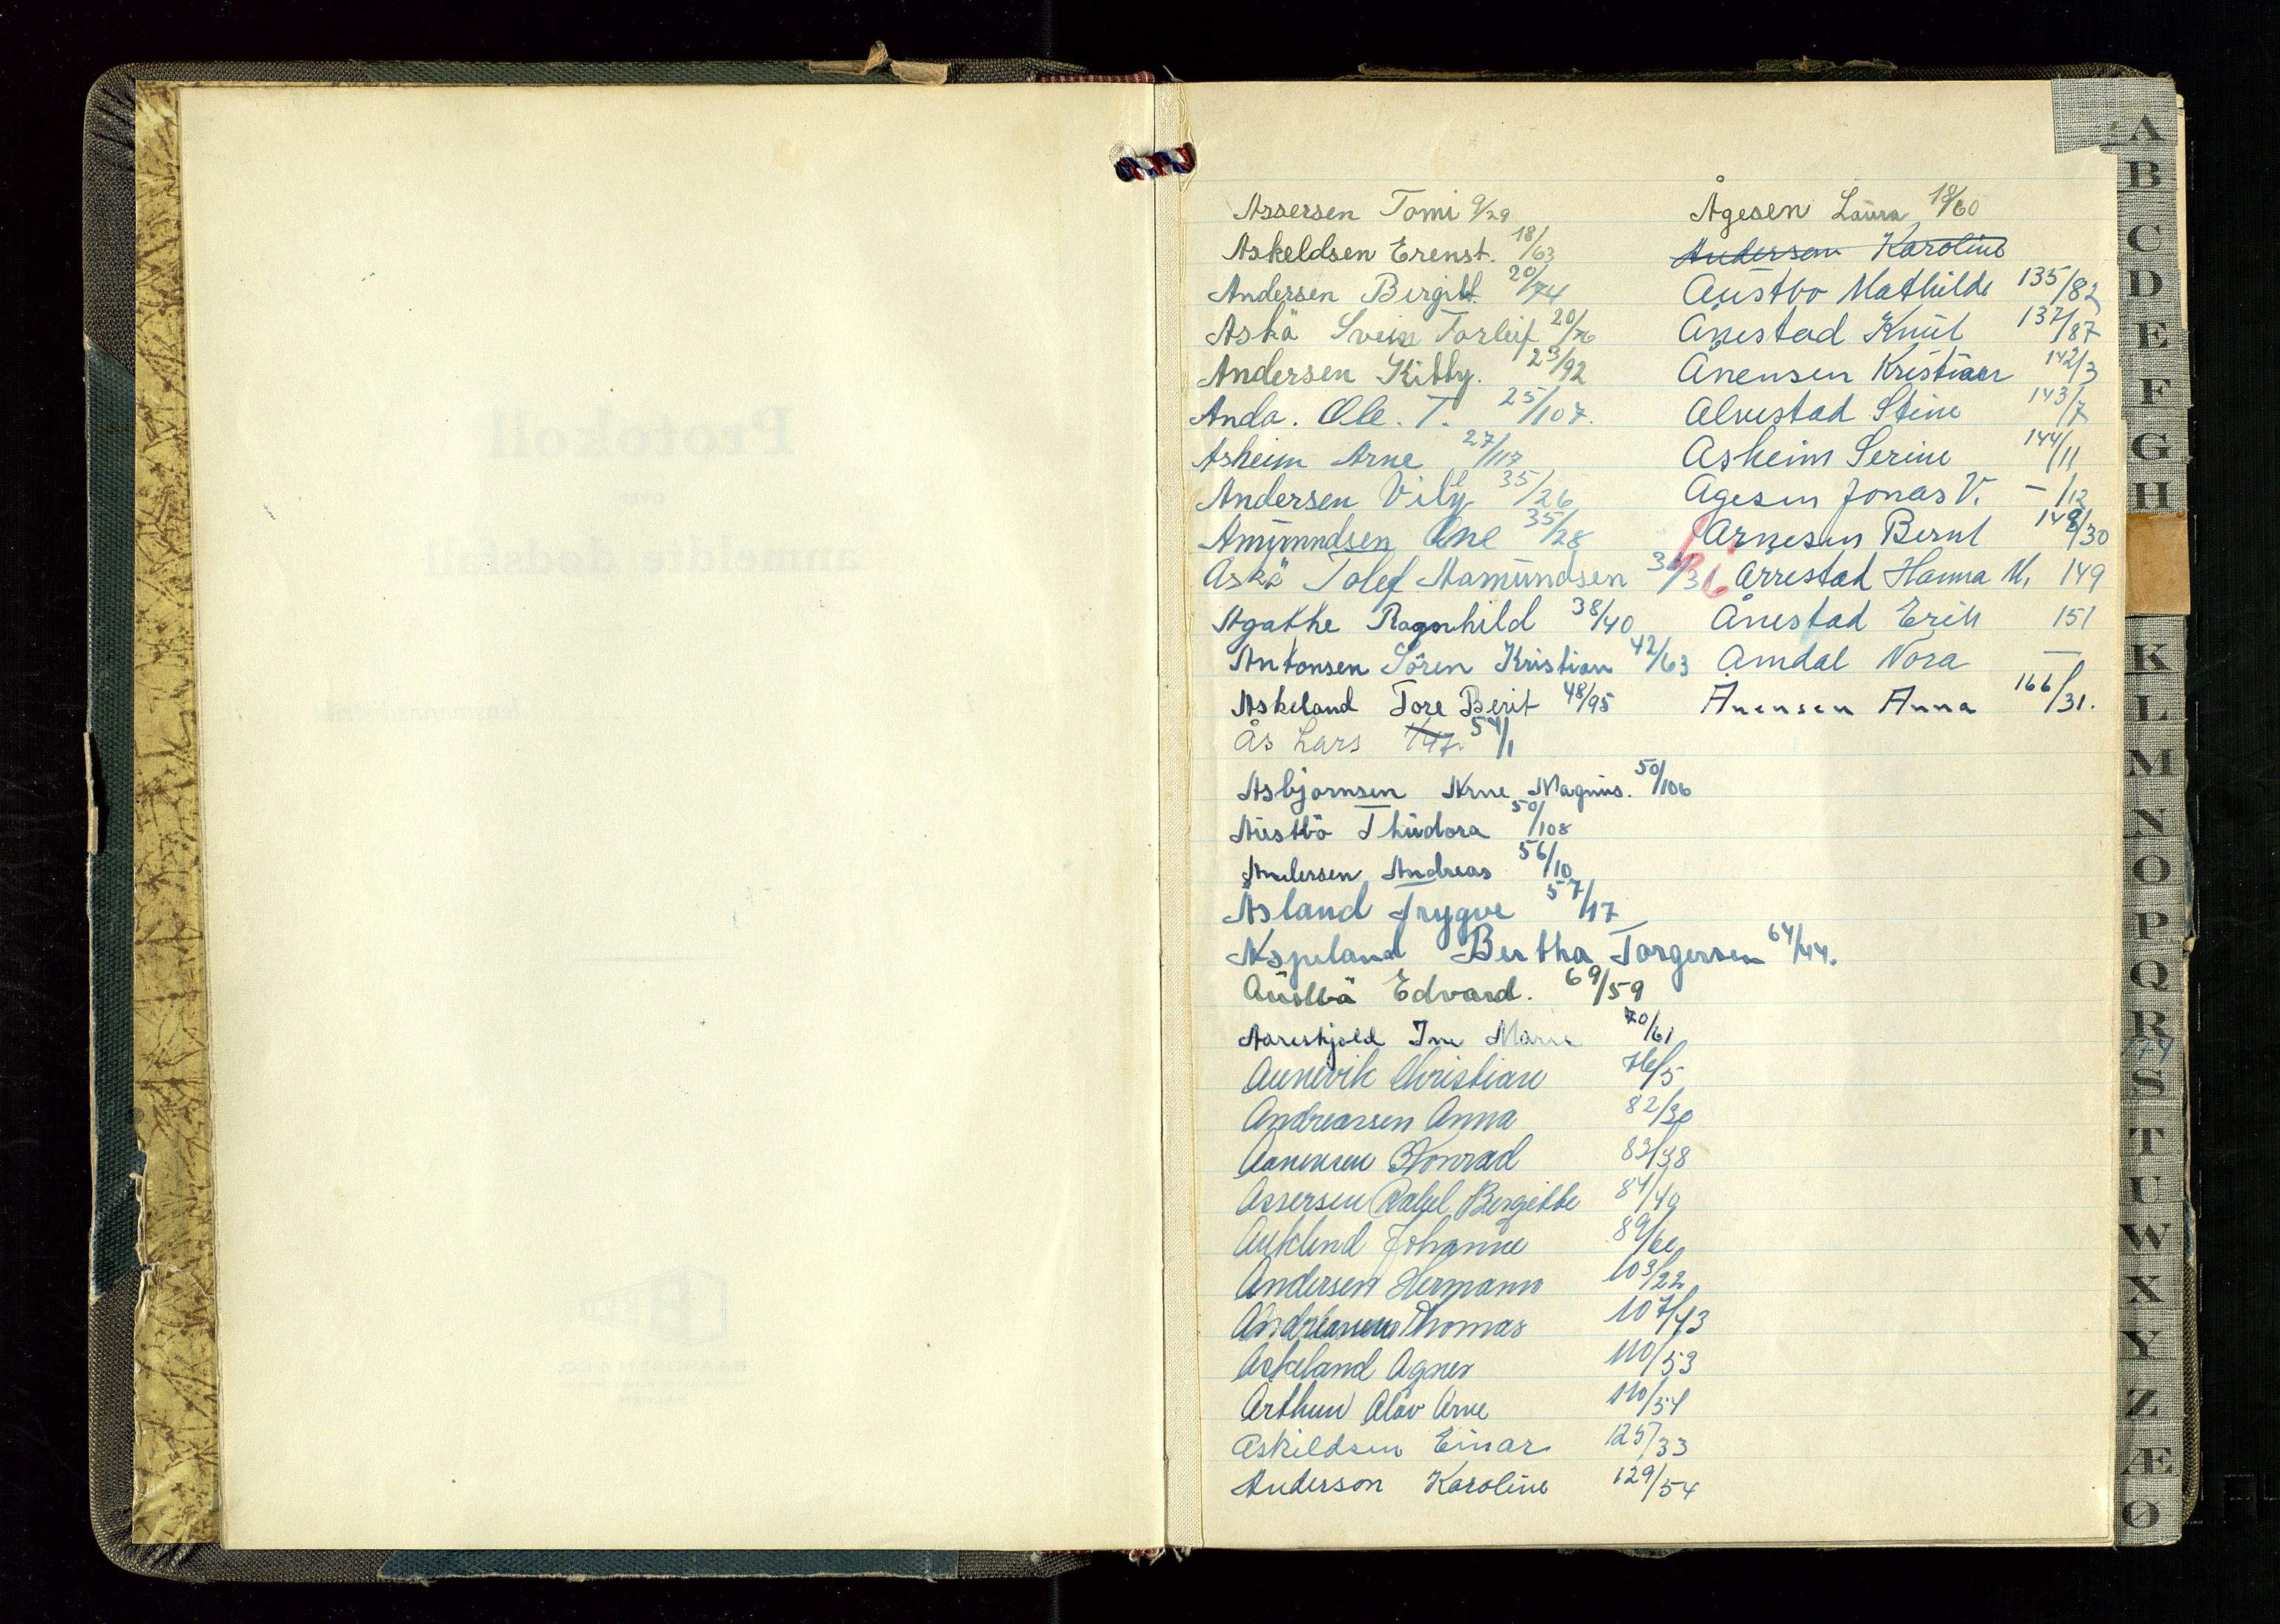 Assersen Tomi 9/29
Askeldsen Erenst. 18/63
Andersen Birgitt 20/74
Askå Svein Torleif 20/76
Andersen Kitty. 23/92
Anda. Ole. T. 25/107.
Asheim Arne 27/117
Andersen Vily 35/26
Amundsen Ane 35/28
Askå Tolef Aamundsen 36/31
Agathe Ragnhild 38/40
Antonsen Sören Kristian 42/63
Askeland Tore Berit 48/95
Ås Lars 54/1
Asbjørnsen Arne Magnus. 50/106
Austbö Thiodora 50/108
Andersen Andreas 56/10
Åsland Trygve 57/17
Aspeland Bertha Torgersen 64/44.
Austbå Edvard. 69/59
Marie 70/61
Aunevik Christian 76/5
Andreassen Anna 82/30
Aanensen Konrad 83/38
Assersen Rakel Bergitte 84/40
Aukland Johanne 89/60
Andersen Hermann 103/22
Andreassen Thomas 107/43
Askeland Agnes 110/53
Arthun Olav Arne 110/54
Askildsen Einar 125/33
Anderson Karoline 129/54
Ågesen Laura 18/60
Anderson Karoline
Austbø Mathilde 135/82
Ånestad Knut 137/87
Ånensen Kristian 142/3
Alvestad Stine 143/7
Asheim Serine 144/11
Agesen Jonas V. - /12
Arnesen Bernt 148/30
Årrestad Hanna M. 149
Ånestad Erik 151
Amdal Nora —
Ånensen Anna 166/31.
A
B
C
D
E
F
G
H
K
L
M
N
O
P
Q
R
S
T
U
W
X
Y
Z
Æ
Ø
Protokoll
over
anmeldte dødsfall